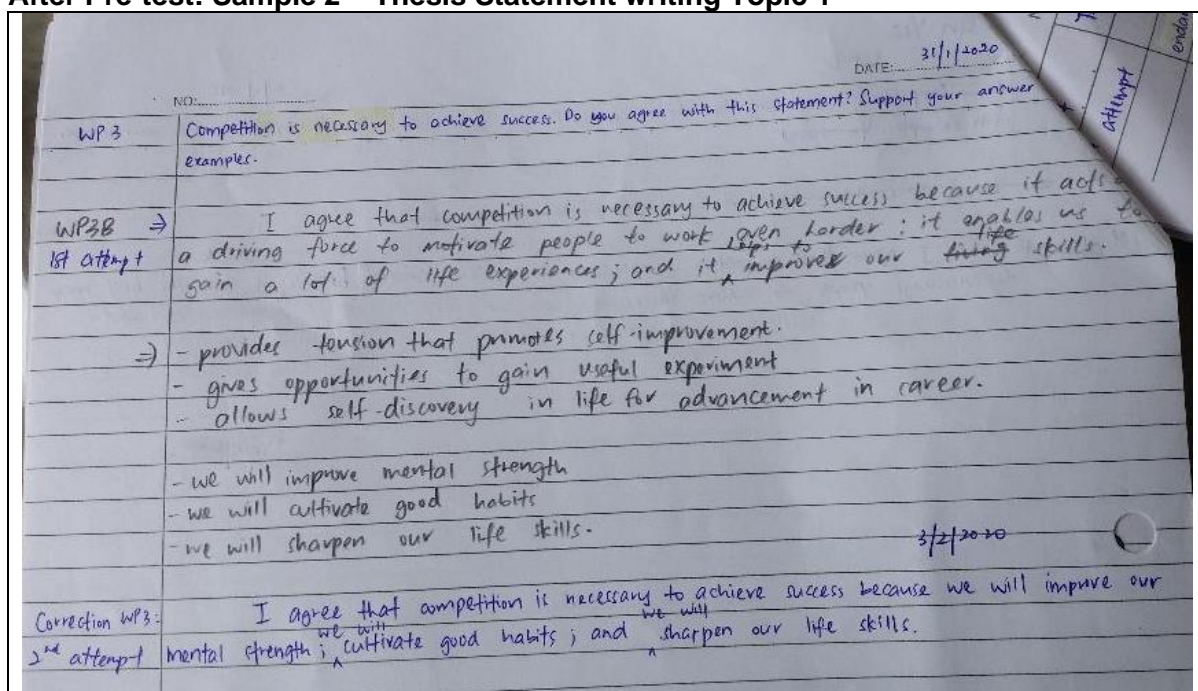 After Pre-test: Sample 2 – Thesis Statement writing Topic 1
DATE: 31/1/2020
NO:
WP 3 Competition is necessary to achieve success. Do you agree with this statement? Support your answer
examples.
attempt
WP3B ⇒ I agree that competition is necessary to achieve success because it acts
1st attempt a driving force to motivate people to work even harder ; it enables us to
gain a lot of life experiences ; and it helps to improves our living life skills.
⇒ - provides tension that promotes self-improvement.
- gives opportunities to gain useful experiment
- allows self-discovery in life for advancement in career.
- we will improve mental strength
- we will cultivate good habits
- we will sharpen our life skills.
3/2/2020
Correction WP3: I agree that competition is necessary to achieve success because we will improve our
2nd attempt mental strength ; we will cultivate good habits ; and we will sharpen our life skills.